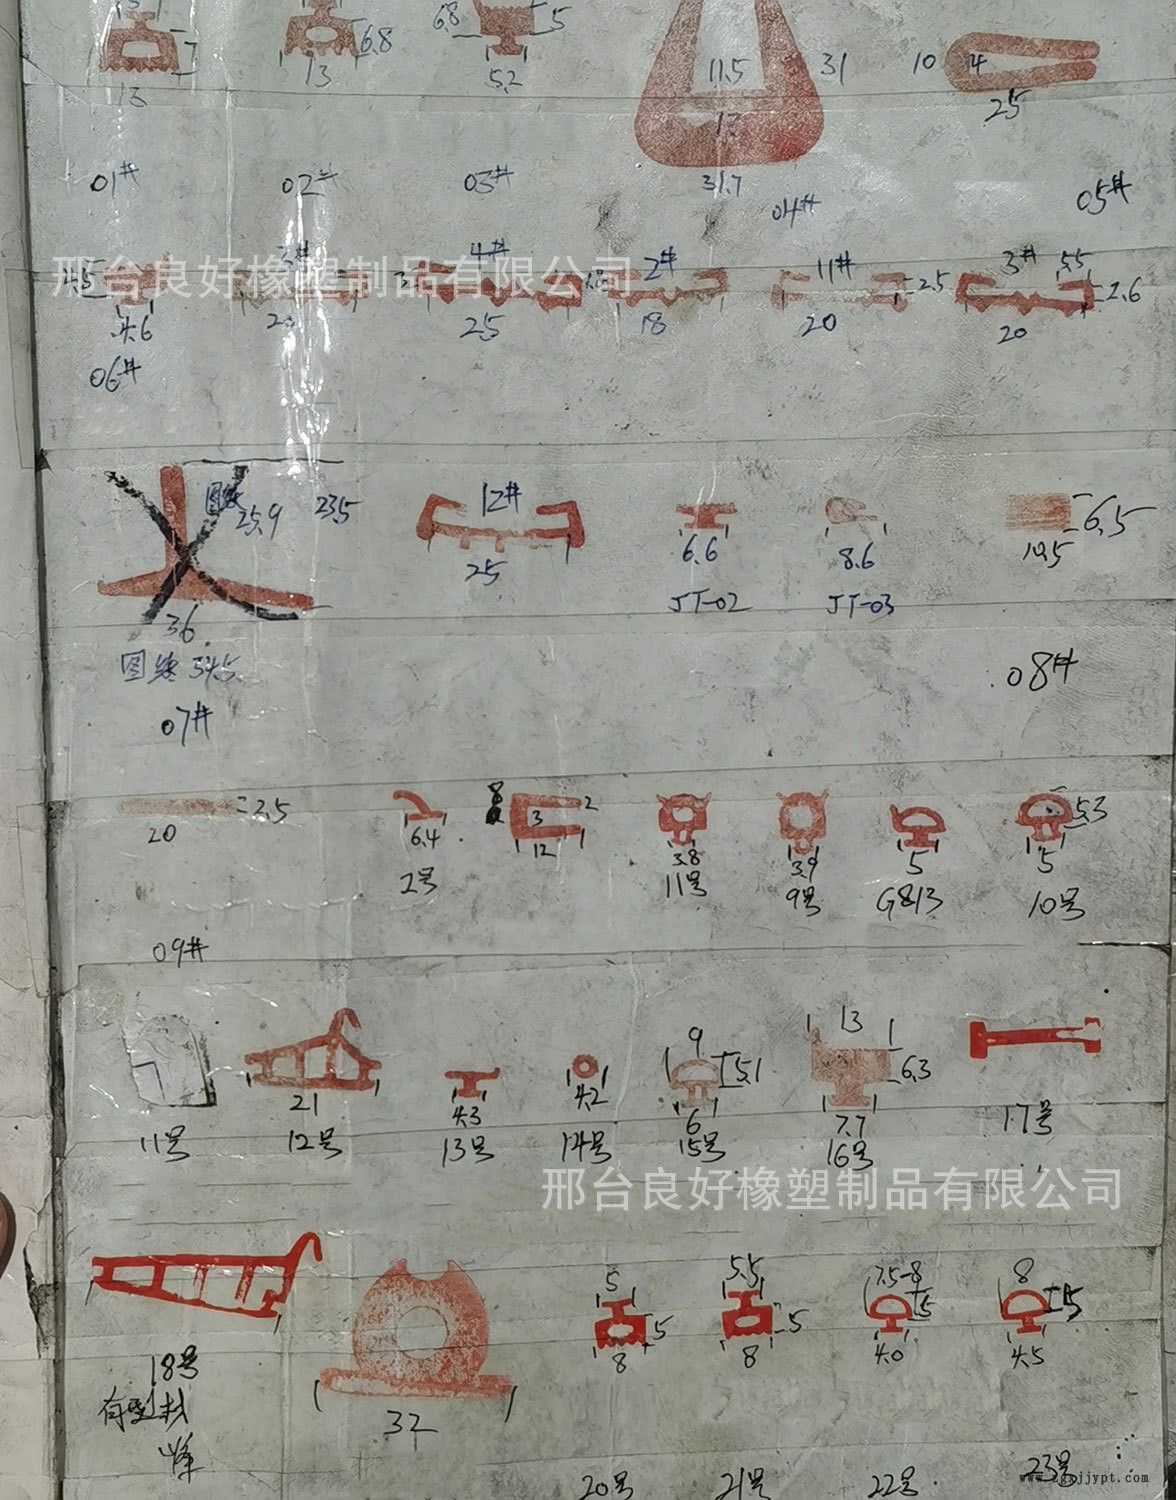 7
13
6.8
13
6.8
5
5.2
11.5
12
31
31.7
10
4
25
01#
02#
03#
04#
05#
4.6
06#
3#
4#
25
2#
18
11#
2.5
20
3#
5.5
2.6
20
邢台良好橡塑制品有限公司
25.9
23.5
36
07#
12#
25
6.6
JT-02
8.6
JT-03
6.5
10.5
08#
2.5
20
09#
6.4
2号
3
2
12
3.8
11号
3.9
9号
5
G813
5.3
5
10号
11号
21
12号
4.3
13号
4.2
14号
9
5.1
6
15号
13
6.3
7.7
16号
17号
邢台良好橡塑制品有限公司
18号
32
5
5
8
20号
5.5
5
8
21号
7.5-8
5
4.0
22号
8
5
4.5
23号